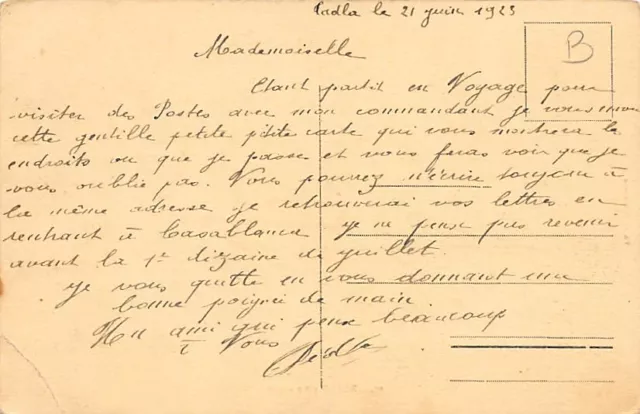 Tadla le 21 juin 1923
B
Mademoiselle
Etant partit en Voyage pour
visiter des Postes avec mon commandant je vous envoi
cette gentille petite ptite carte qui vous montrera les
endroits ou que je passe et vous feras voir que je
vous oublie pas. Vous pouvez m'écrire toujours à
la même adresse je retrouverai vos lettres en
rentrant à Casablanca je ne pense pas revenir
avant la 1e dizaine de juillet.
je vous quitte en vous donnant une
bonne poignée de main
Un ami qui pense beaucoup
à Vous